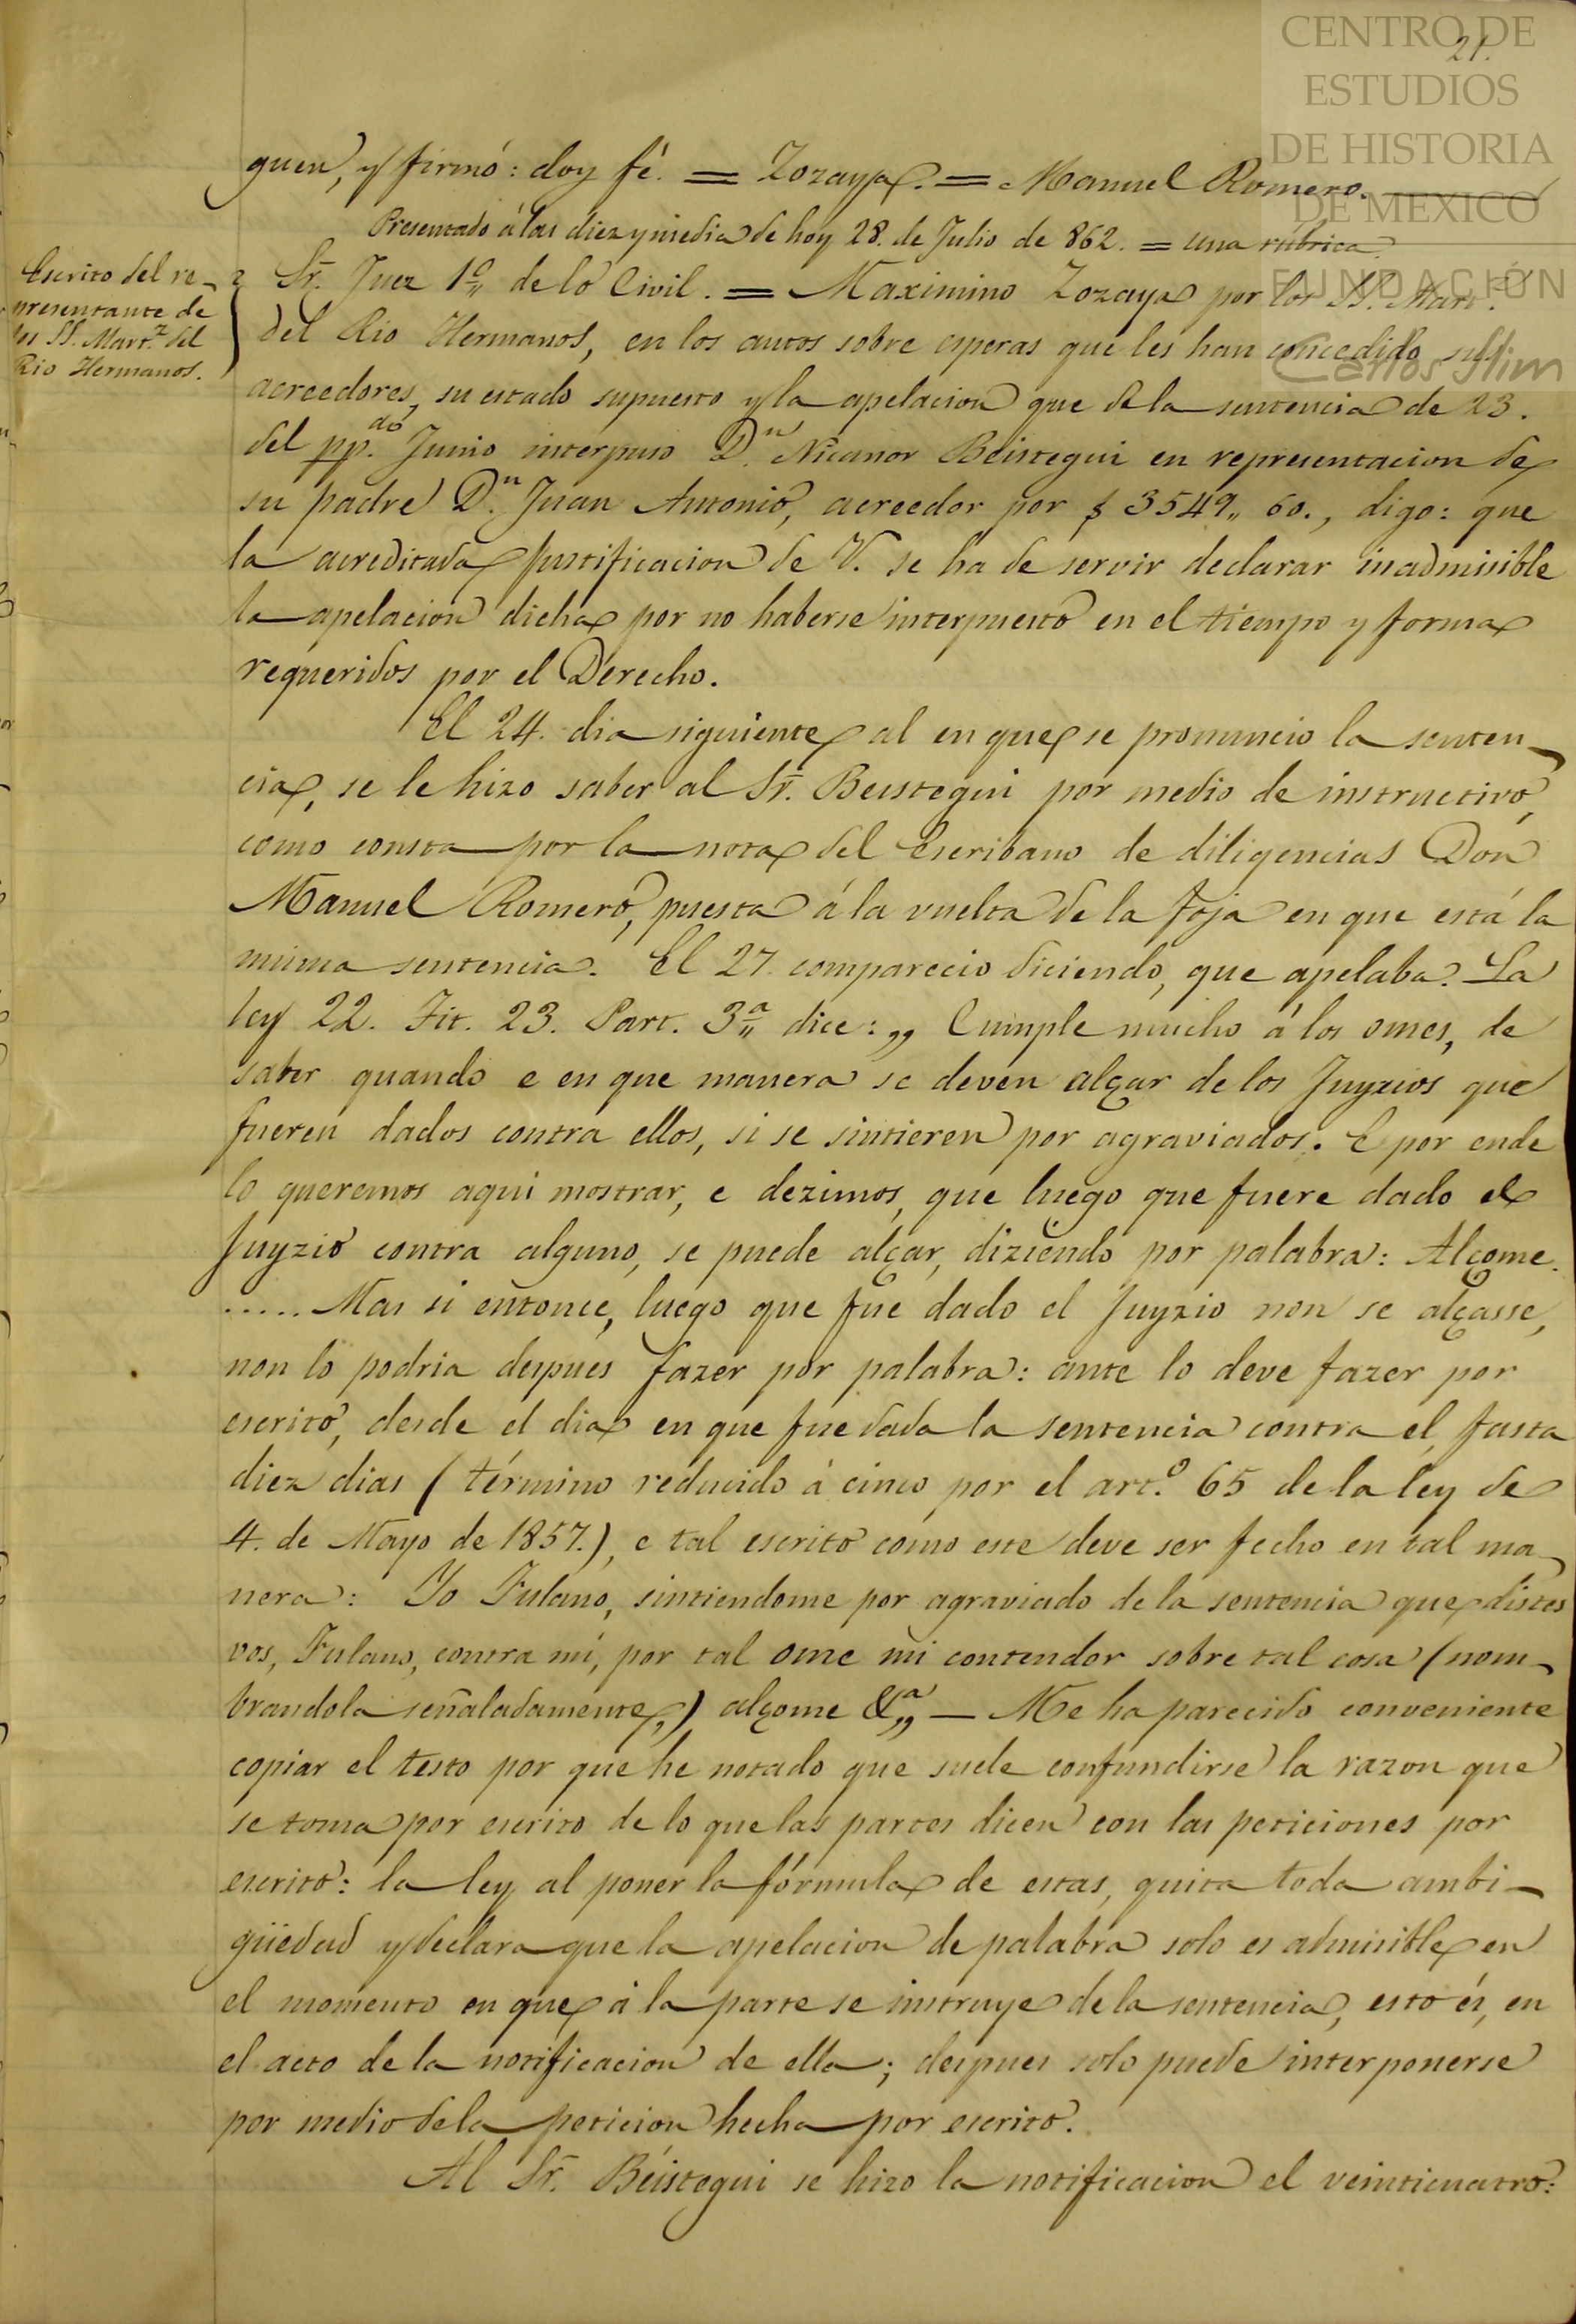 CENTRO DE
ESTUDIOS
DE HISTORIA
DE MEXICO
FUNDACIÓN
Carlos Slim
21.
guen, y firmó: doy fé. = Zozaya. = Manuel Romero.
Presentado á las diez y media de hoy 28. de Julio de 862. = una rúbrica.
Escrito del re-
presentante de
los SS. Mart.z del
Rio Hermanos.
Sr. Juez 1º de lo Civil. = Maximino Zozaya por los SS. Mart.z
del Rio Hermanos, en los autos sobre esperas que les han concedido sus
acreedores, su estado supuesto y la apelacion que de la sentencia de 23.
del pp.do Junio interpuso D.n Nicanor Béistegui en representacion de
su padre D.n Juan Antonio, acreedor por $ 3549,, 60., digo: que
la acreditada justificacion de V. se ha de servir declarar inadmisible
la apelacion dicha por no haberse interpuesto en el tiempo y forma
requeridos por el Derecho.
El 24. dia siguiente al en que se pronuncio la senten-
cia, se le hizo saber al Sr. Beistegui por medio de instructivo,
como consta por la nota del Escribano de diligencias Don
Manuel Romero, puesta á la vuelta de la foja en que está la
misma sentencia. El 27. comparecio diciendo, que apelaba. La
ley 22. Tit. 23. Part. 3ª dice: „ Cumple mucho á los omes, de
saber quando e en que manera se deven alçar de los Juyzios que
fueren dados contra ellos, si se sintieren por agraviados. E por ende
lo queremos aqui mostrar, e dezimos, que luego que fuere dado el
Juyzio contra alguno, se puede alçar, diziendo por palabra: Alçome.
..... Mas si entonce, luego que fue dado el Juyzio non se alçasse,
non lo podria despues fazer por palabra: ante lo deve fazer por
escrito, desde el dia en que fue dada la sentencia contra el, fasta
diez dias (término reducido á cinco por el art.º 65 de la ley de
4. de Mayo de 1857.), e tal escrito como este deve ser fecho en tal ma-
nera: Yo Fulano, sintiendome por agraviado de la sentencia que distes
vos, Fulano, contra mí, por tal ome mi contendor sobre tal cosa (nom-
brandola señaladamente,) alçome &ª„ — Me ha parecido conveniente
copiar el testo por que he notado que suele confundirse la razon que
se toma por escrito de lo que las partes dicen con las peticiones por
escrito: la ley al poner la fórmula de estas, quita toda ambi-
güedad y declara que la apelacion de palabra solo es admisible en
el momento en que á la parte se instruye de la sentencia, esto és, en
el acto de la notificacion de ella; despues solo puede interponerse
por medio de la peticion hecha por escrito.
Al Sr. Béistegui se hizo la notificacion el veinticuatro: